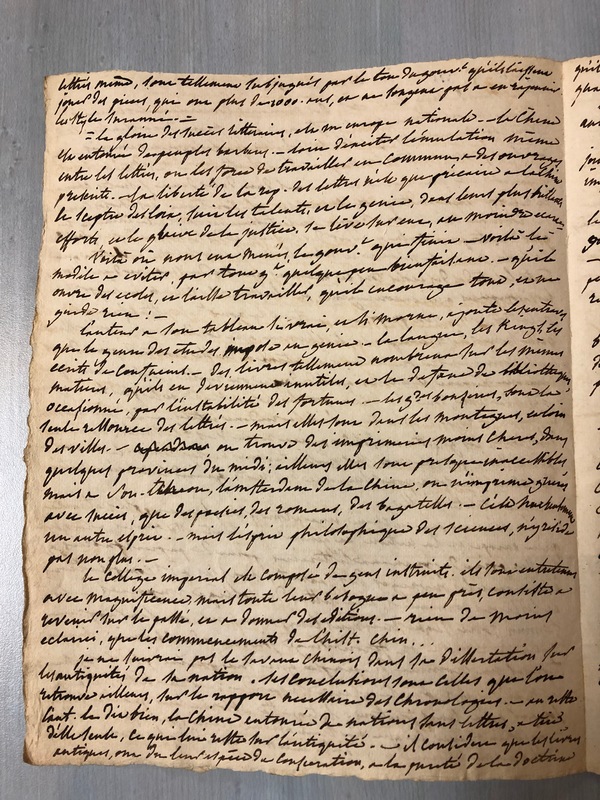 lettrés même, sont tellement subjugués par le ton du gouv.t qu'ils laissent
jouer des pieces, qui ont plus de 2000. ans, et ne songent pas a en rajeunir
le style suranné. —
= la gloire des succès litteraires, est en europe nationale. — la Chine
est entourée de peuples barbares. — loin d'exciter l'émulation même
entre les lettrés, on les force de travailler en commun, a des ouvrages
présents. — la liberté de la rep. des lettres n'est que précaire a la Chine
le sceptre des loix, suit les talents, et le genie, dans leurs plus
efforts, et le glaive de la justice, se lève sur eux, au moindre
Voilà où nous eut menés, le gouv.t qui finit. — voilà le
modèle a eviter, par tout g.t quelque peu bienfaisant. — qu'il
ouvre des ecoles, et laisse travailler, qu'il encourage tout, et ne
guide rien ! —
L'auteur a son tableau si vrai, et si morne, ajoute
que le genre des etudes en genie. — la langue, les Kings, les
cents de Confucius. — des livres tellement nombreux sur les mêmes
matieres, qu'ils en deviennent inutiles, et le defaut de bibliotheques,
occasionné, par l'instabilité des fortunes. — les g.des bonzeries, sont la
seule ressource des lettrés. — mais elles sont dans les montagnes, et loin
des villes. — on trouve des imprimeries moins cheres, dans
quelques provinces du midi; ailleurs elles sont presque inaccessibles
mais a Sou-tcheou, l'amsterdam de la Chine, on n'imprime gueres
avec succès, que des poesies, des romans, des bagatelles. — c'est
un autre esprit. — mais l'esprit philosophique des sciences, n'y réside
pas non plus. —
le College imperial est composé de gens instruits. ils sont entretenus
avec magnificence, mais toute leur besogne a peu près consiste a
revenir sur le passé, et a donner des editions. — rien de moins
eclairci, que les commencements de l'hist. Chin...
je ne suivrai pas le savant chinois dans sa dissertation sur
les antiquités de sa nation. ses conclusions sont celles que l'on
retrouve ailleurs, sur le rapport necessaire des chronologies. — au reste
l'aut. le dit bien, la Chine entourée de nations sans lettres, a tiré
d'elle seule, ce qui lui reste sur l'antiquité. — il considere que les livres
antiques, ont du leur espece de conservation, a la pureté de la doctrine